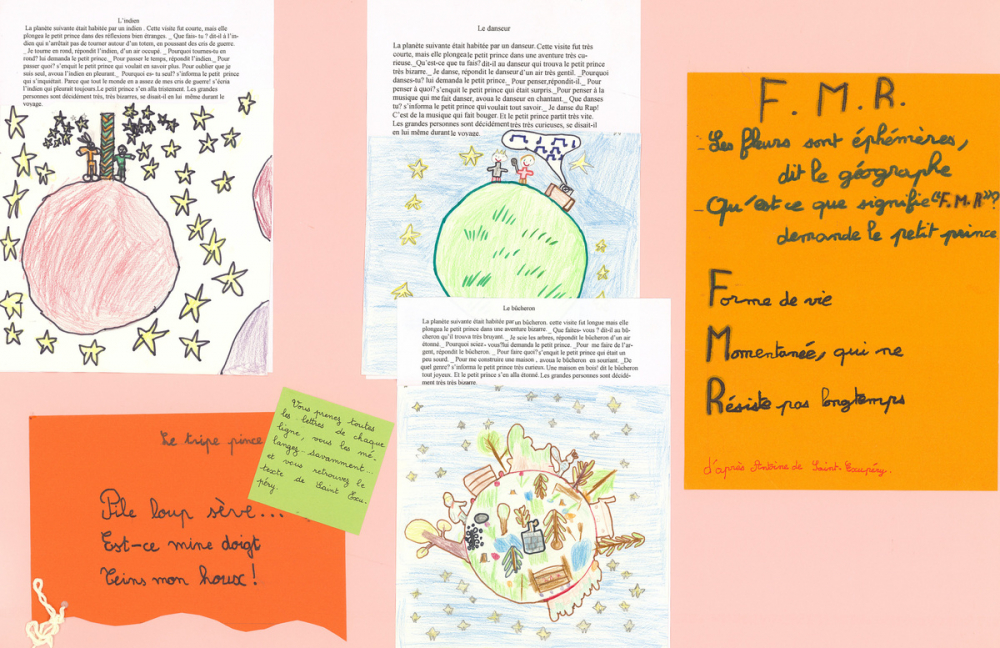 L'indien
La planète suivante était habitée par un indien . Cette visite fut courte, mais elle
plongea le petit prince dans des réflexions bien étranges. _ Que fais- tu ? dit-il à l'in-
dien qui n'arrêtait pas de tourner autour d'un totem, en poussant des cris de guerre.
_ Je tourne en rond, répondit l'indien, d'un air occupé. _ Pourquoi tournes-tu en
rond? lui demanda le petit prince._ Pour passer le temps, répondit l'indien._ Pour
passer quoi? s'enquit le petit prince qui voulait en savoir plus. Pour oublier que je
suis seul, avoua l'indien en pleurant._ Pourquoi es- tu seul? s'informa le petit prince
qui s'inquiétait. Parce que tout le monde en a assez de mes cris de guerre! s'écria
l'indien qui pleurait toujours.Le petit prince s'en alla tristement. Les grandes
personnes sont décidément très, très bizarres, se disait-il en lui même durant le
voyage.
Le danseur
La planète suivante était habitée par un danseur. Cette visite fut très
courte, mais elle plongea le petit prince dans une aventure très cu-
rieuse. _Qu'est-ce que tu fais? dit-il au danseur qui trouva le petit prince
très bizarre._ Je danse, répondit le danseur d'un air très gentil. _Pourquoi
danses-tu? lui demanda le petit prince._ Pour penser,répondit-il._ Pour
penser à quoi? s'enquit le petit prince qui était surpris._Pour penser à la
musique qui me fait danser, avoua le danseur en chantant._ Que danses
tu? s'informa le petit prince qui voulait tout savoir ._ Je danse du Rap!
C'est de la musique qui fait bouger. Et le petit prince partit très vite.
Les grandes personnes sont décidément très très curieuses, se disait-il
en lui même durant le voyage.
Le bûcheron
La planète suivante était habitée par un bûcheron. cette visite fut longue mais elle
plongea le petit prince dans une aventure bizarre._ Que faites- vous ? dit-il au bû-
cheron qu'il trouva très bruyant._ Je scie les arbres, répondit le bûcheron d'un air
étonné._ Pourquoi sciez- vous?lui demanda le petit prince. _Pour me faire de l'ar-
gent, répondit le bûcheron._ Pour faire quoi? s'enquit le petit prince qui était un
peu sourd. _ Pour me construire une maison , avoua le bûcheron en souriant. _De
quel genre? s'informa le petit prince très curieux. Une maison en bois! dit le bûcheron
tout joyeux. Et le petit prince s'en alla étonné. Les grandes personnes sont décidé-
ment très très bizarre.
F. M. R.
- Les fleurs sont éphémères,
dit le géographe
- Qu'est ce que signifie "F.M.R"?
demande le petit prince
Forme de vie
Momentanée, qui ne
Résiste pas longtemps
d'après Antoine de Saint-Exupéry.
Le tripe pince
Pile loup sève...
Est-ce mine doigt
Teins mon houx!
Vous prenez toutes
les lettres de chaque
ligne, vous les mé-
langez savamment...
et vous retrouvez le
texte de Saint Exu-
péry.